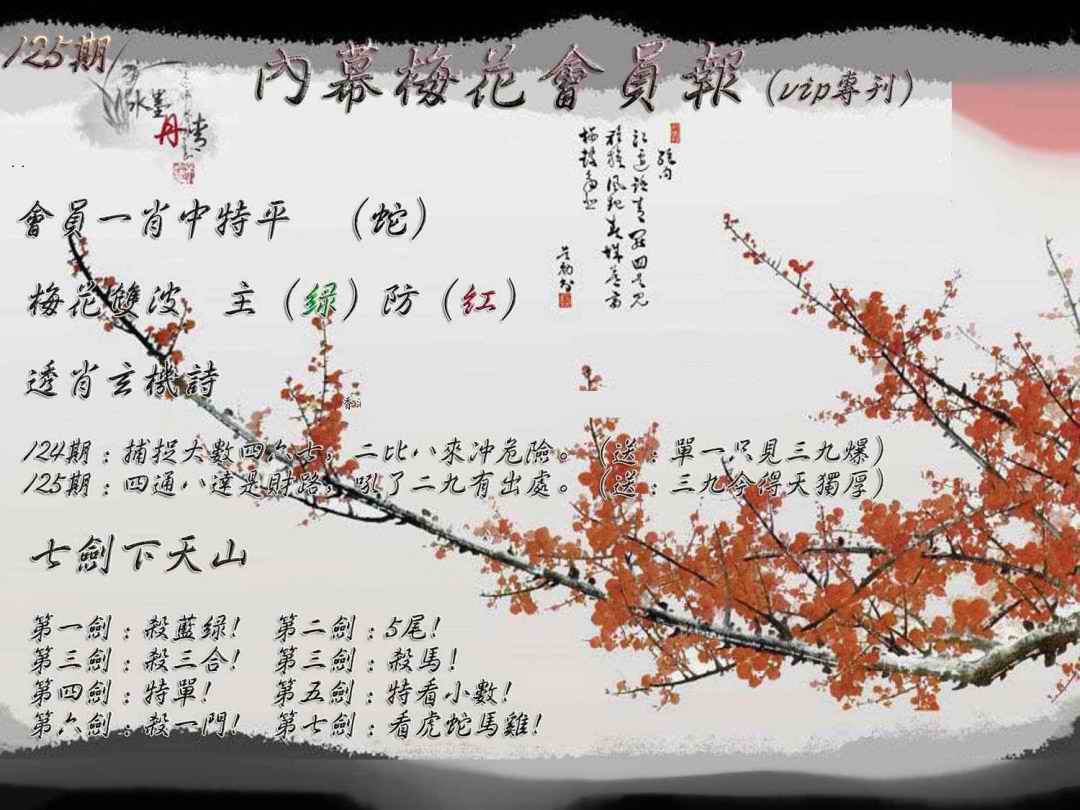 125期
內幕梅花會員報（vip專刊）
水墨
丹青
會員一肖中特平 （蛇）
梅花雙波 主（绿）防（红）
透肖玄機詩
124期：捕捉大數四六七；二比八來冲危險。（送：單一只見三九爆）
125期：四通八達是財路；吼了二九有出處。（送：三九今得天獨厚）
七劍下天山
第一劍：殺藍绿！ 第二劍：5尾！
第三劍：殺三合！ 第三劍：殺馬！
第四劍：特單！ 第五劍：特看小數！
第六劍：殺一門！ 第七劍：看虎蛇馬雞！